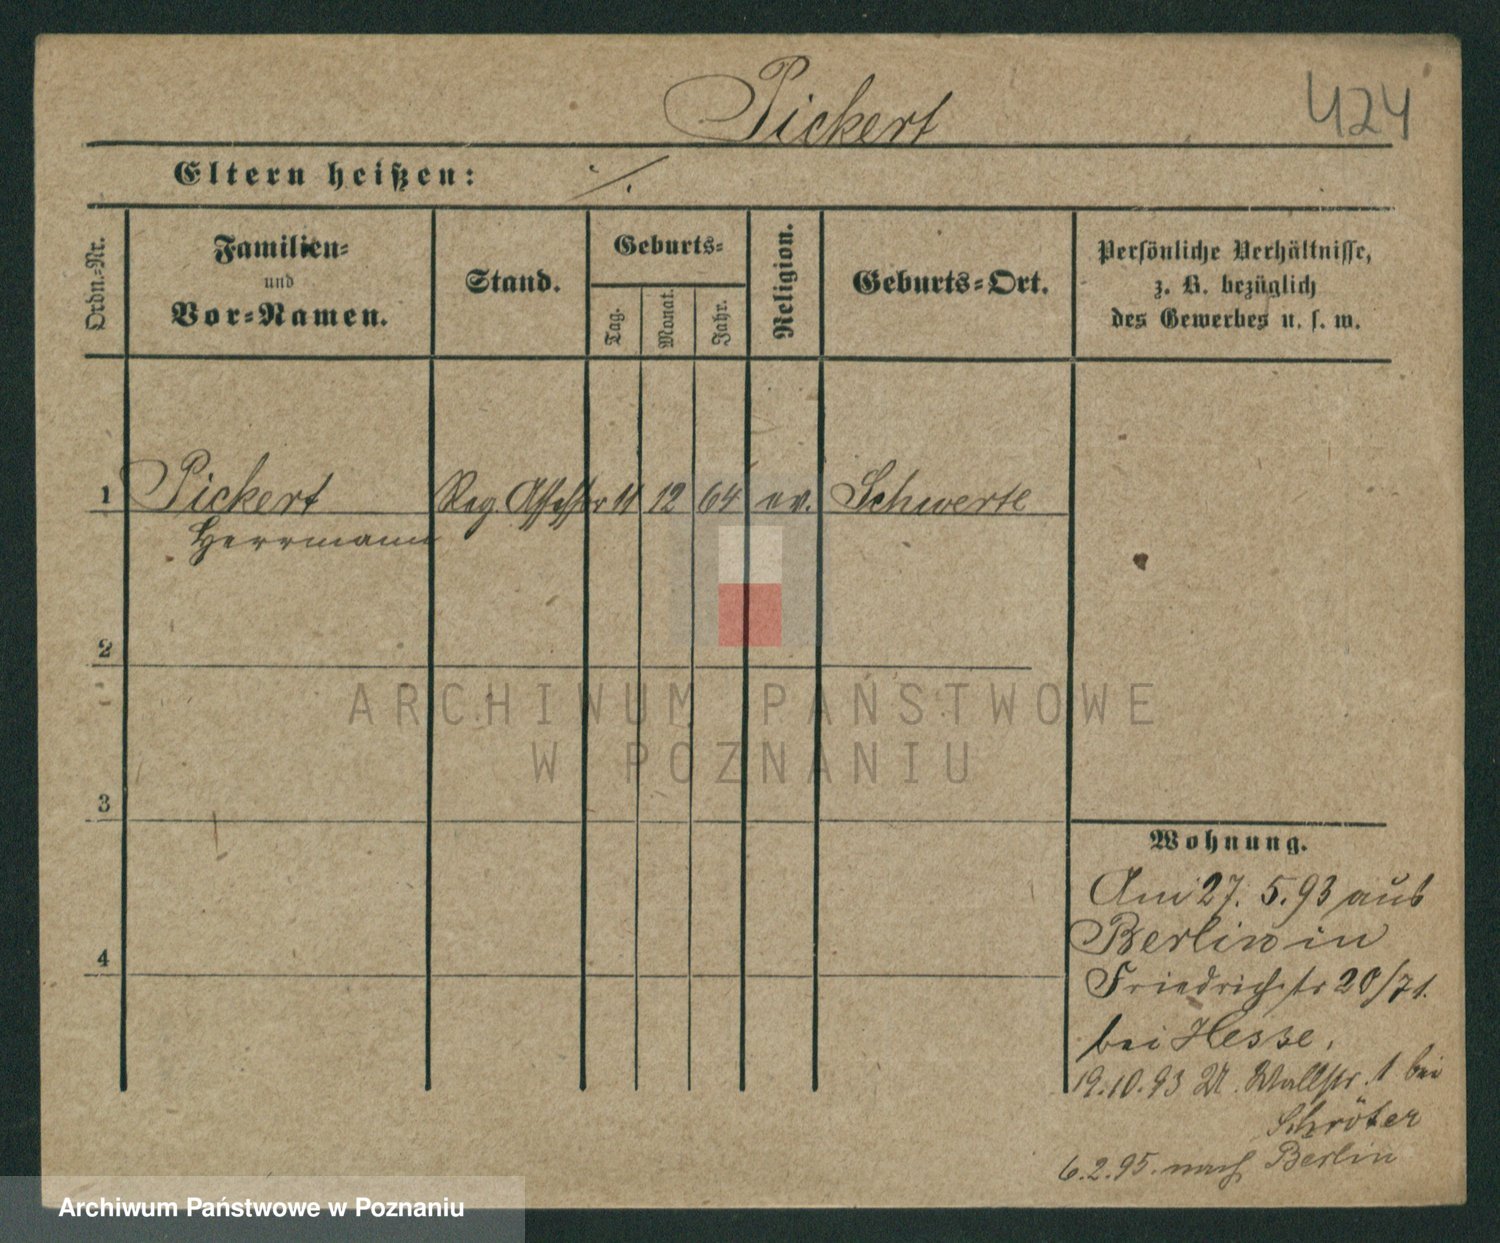 Pickert
424
Eltern heißen: ./.
Ordn.-Nr.
Familien-
und
Vor-Namen.
Stand.
Geburts-
Tag.
Monat.
Jahr.
Religion.
Geburts-Ort.
Persönliche Verhältnisse,
z. B. bezüglich
des Gewerbes u. s. w.
1 Pickert Reg. Assessor 11 12 64 ev. Schwerte
Herrmann
2
3
4
Wohnung.
Am 27. 5. 93 aus
Berlin in
Friedrichstr 20/71.
bei Hesse.
19.10.93 U. Wallstr. 1 bei
Schröter
6.2.95. nach Berlin
ARCHIWUM PAŃSTWOWE
W POZNANIU
Archiwum Państwowe w Poznaniu